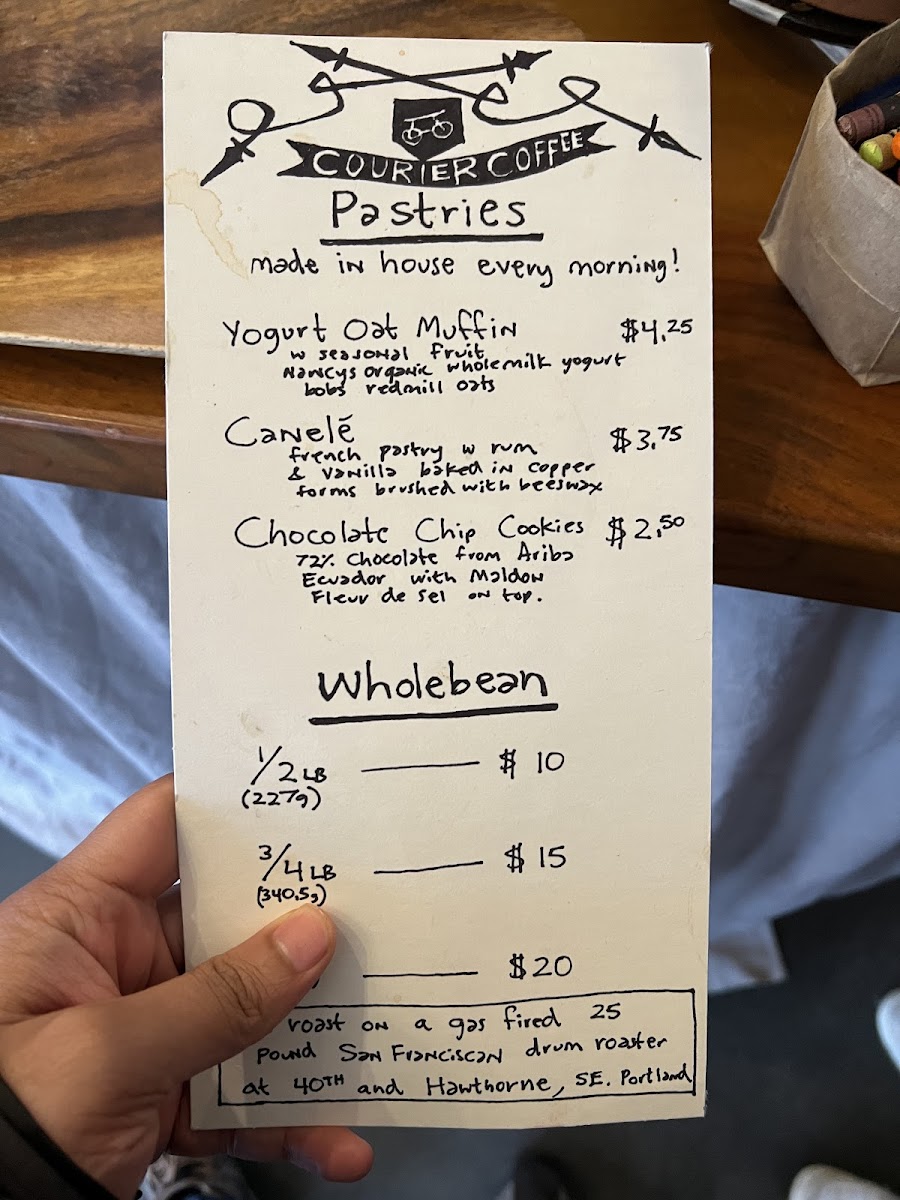 COURIER COFFEE
Pastries
made in house every morning!
Yogurt Oat Muffin $4.25
w seasonal fruit
Nancys organic wholemilk yogurt
bobs redmill oats
Canelé $3.75
french pastry w rum
& vanilla baked in copper
forms brushed with beeswax
Chocolate Chip Cookies $2.50
72% Chocolate from Ariba
Ecuador with Maldon
Fleur de Sel on top.
Wholebean
1/2 LB $10
(227g)
3/4 LB $15
(340.5g)
$20
roast on a gas fired 25
pound San Franciscan drum roaster
at 40TH and Hawthorne, SE. Portland